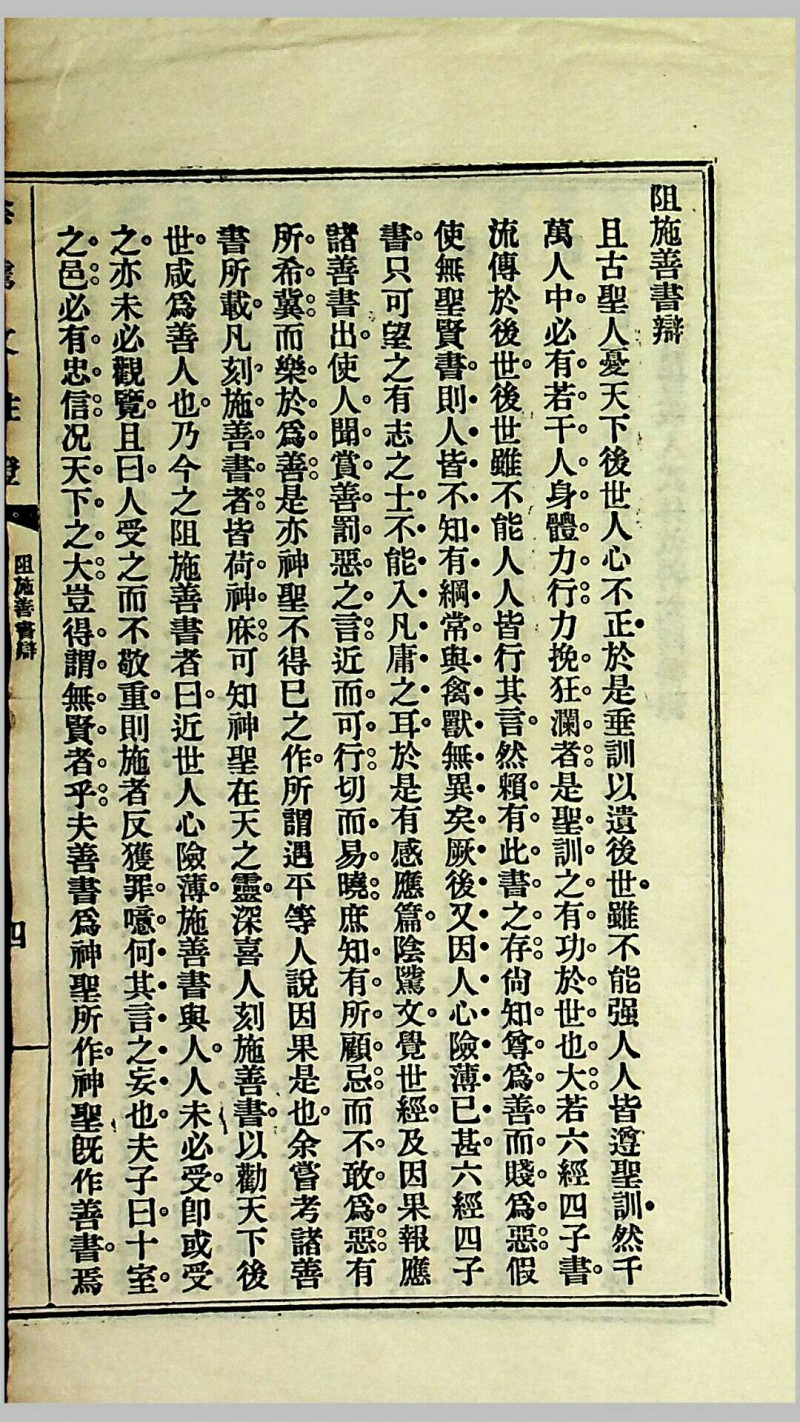 阻施善書辯
且古聖人憂天下後世人心不正於是垂訓以遺後世雖不能强人人皆遵聖訓然千
萬人中必有若干人身體力行力挽狂瀾者是聖訓之有功於世也大若六經四子書
流傳於後世後世雖不能人人皆行其言然賴有此書之存尙知尊爲善而賤爲惡假
使無聖賢書則人皆不知有綱常與禽獸無異矣厥後又因人心險薄已甚六經四子
書只可望之有志之士不能入凡庸之耳於是有感應篇陰騭文覺世經及因果報應
諸善書出使人聞賞善罰惡之言近而可行切而易曉庶知有所顧忌而不敢爲惡有
所希冀而樂於爲善是亦神聖不得已之作所謂遇平等人說因果是也余嘗考諸善
書所載凡刻施善書者皆荷神庥可知神聖在天之靈深喜人刻施善書以勸天下後
世咸爲善人也乃今之阻施善書者曰近世人心險薄施善書與人人未必受卽或受
之亦未必觀覽且曰人受之而不敬重則施者反獲罪噫何其言之妄也夫子曰十室
之邑必有忠信况天下之大豈得謂無賢者乎夫善書爲神聖所作神聖旣作善書焉
文註證
阻施善書辯
四